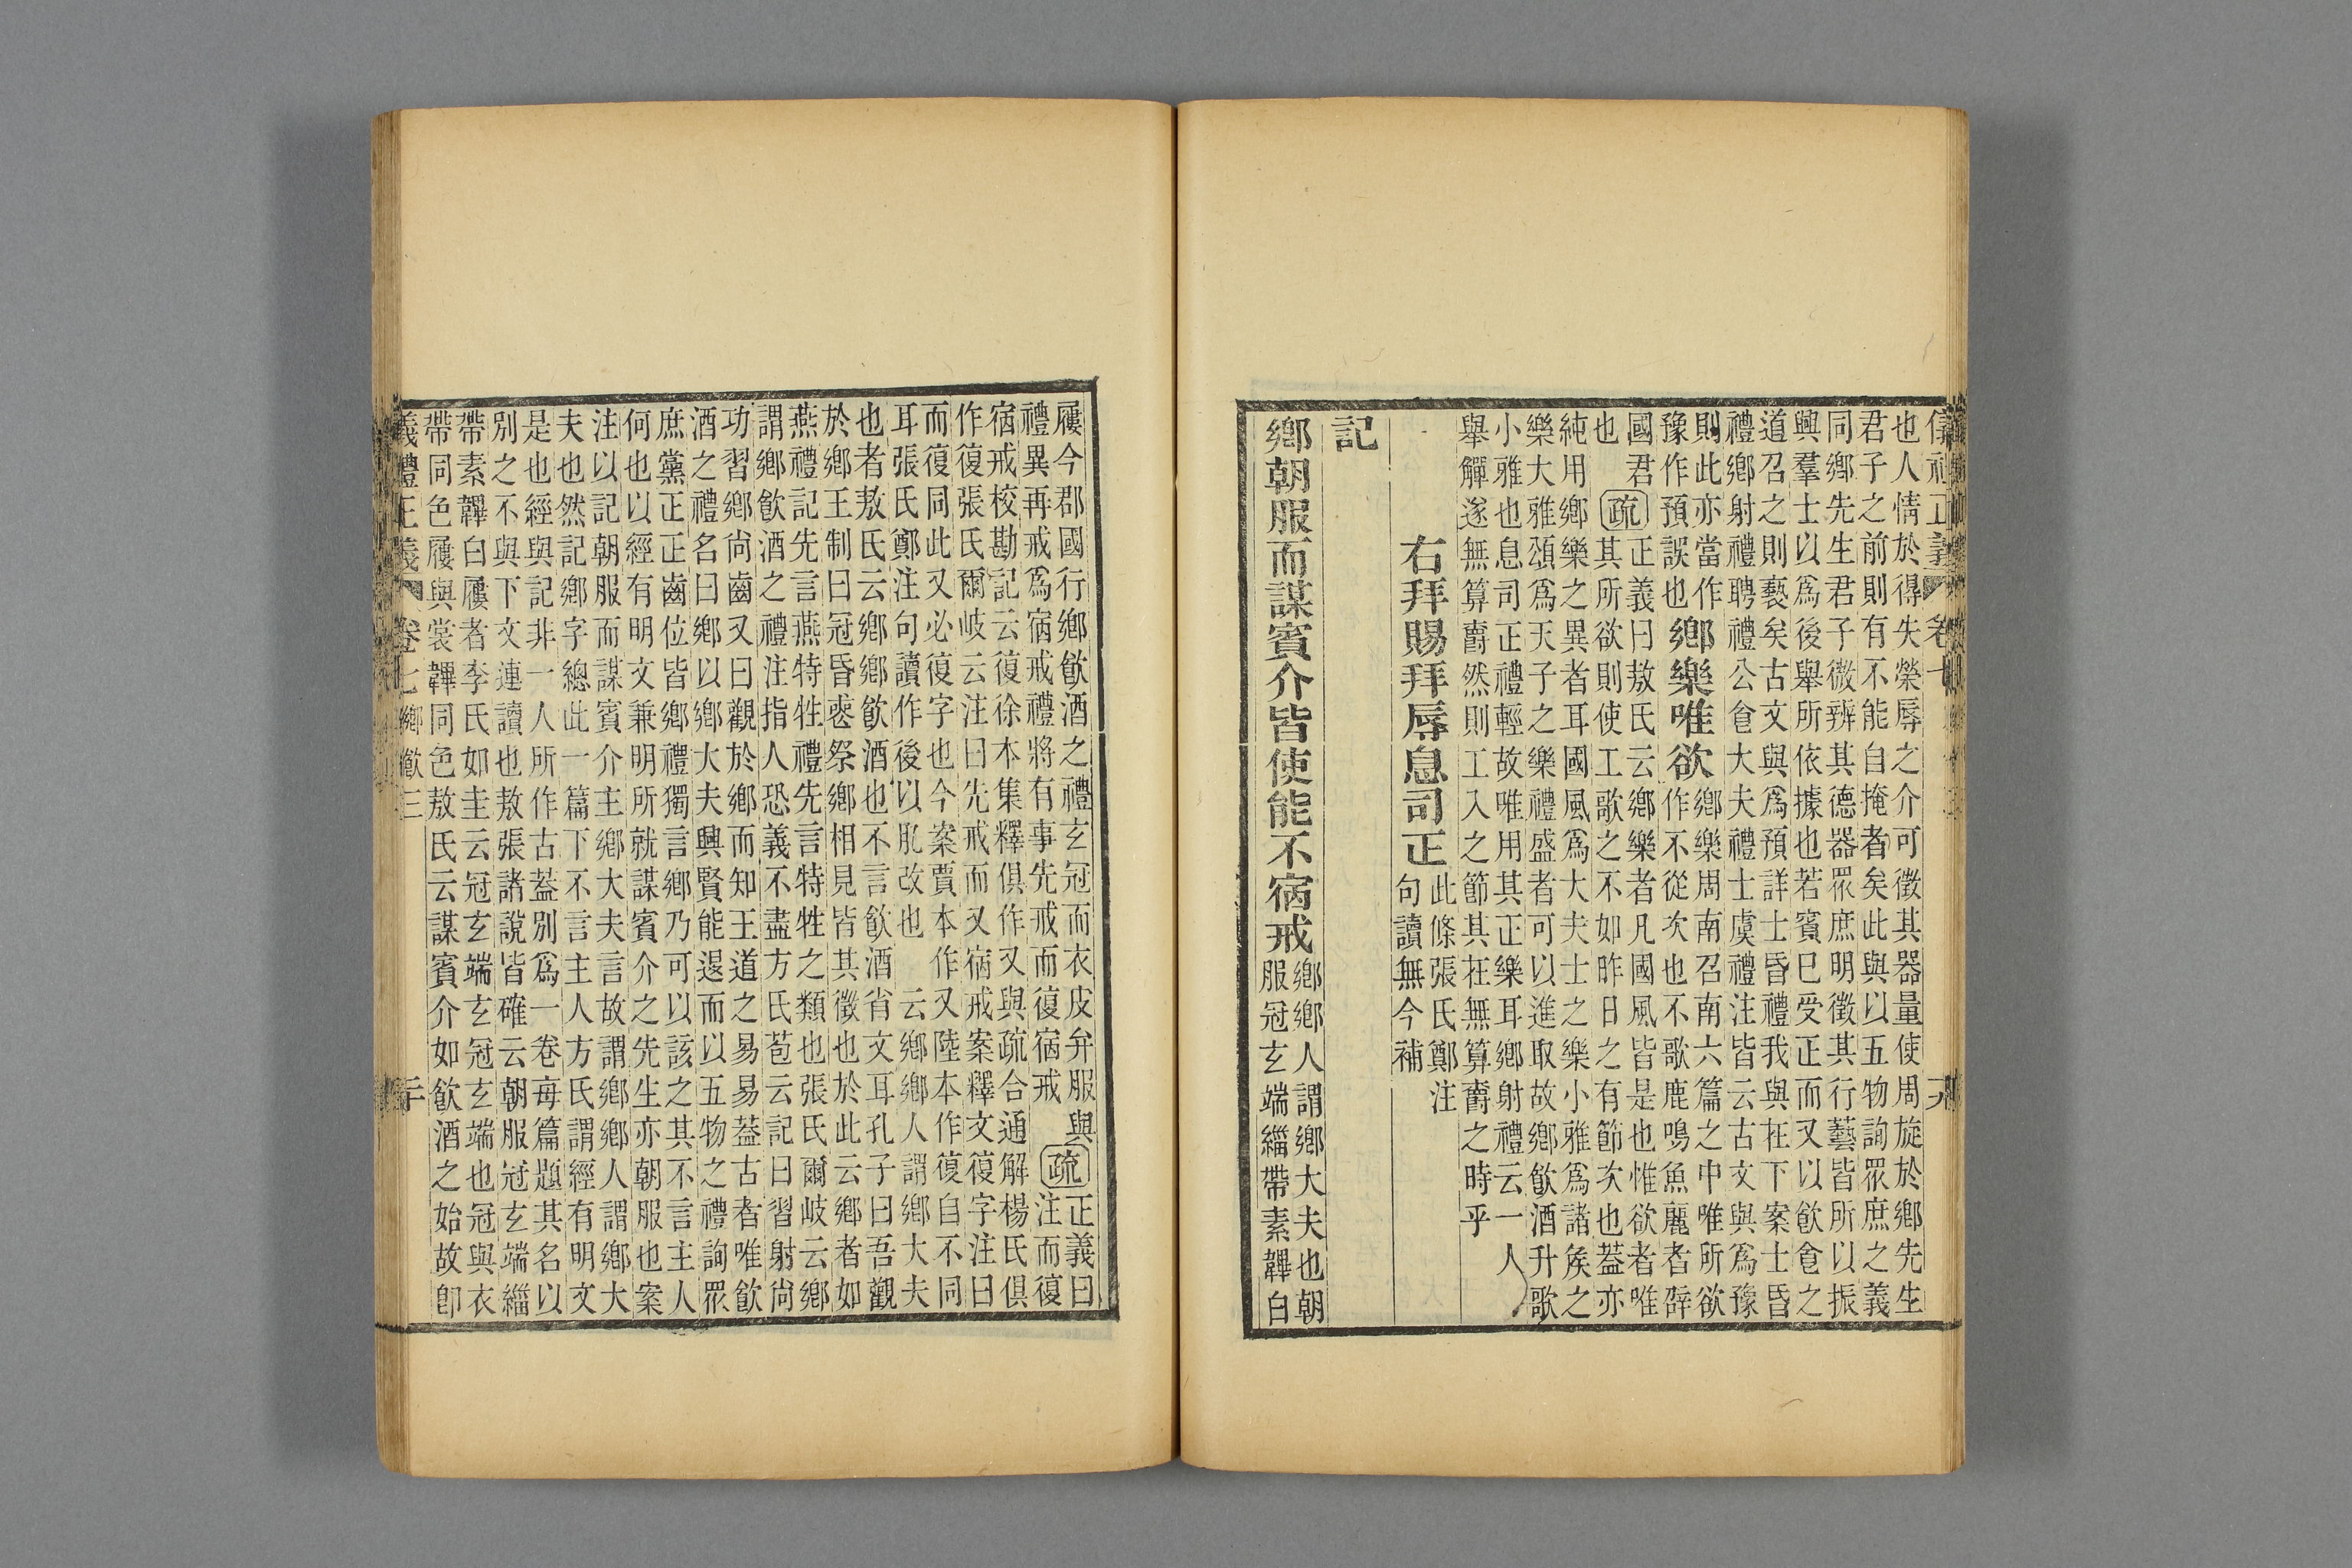 也人情於得失榮辱之介可徵其器量使周旋於鄉先生
君子之前則有不能自掩者矣此與以五物詢眾庶之義
同鄉先生君子微辨其德器眾庶明徵其行藝皆所以振
興羣士以爲後舉所依據也若賓巳受正而又以飲食之
道召之則褻矣古文與爲預詳士昏禮我與在下案士昏
禮鄉射禮聘禮公食大夫禮士虞禮注皆云古文與爲豫
則此亦當作
豫作預誤也
鄉樂唯欲
鄉樂周南召南六篇之中唯所欲
作不從次也不歌鹿鳴魚麗者辟
國君
也
疏
正義曰敖氏云鄉樂者凡國風皆是也惟欲者唯
其所欲則使工歌之不如昨日之有節次也蓋亦
純用鄉樂之異者耳國風爲大夫士之樂小雅爲諸矦之
樂大雅頌爲天子之樂禮盛者可以進取故鄉飲酒升歌
小雅也息司正禮輕故唯用其正樂耳鄉射禮云一人
舉觶遂無算爵然則工入之節其在無算爵之時乎
右拜賜拜辱息司正
此條張氏鄭注
句讀無今補
記
鄉朝服而謀賓介皆使能不宿戒
鄉鄉人謂鄉大夫也朝
服冠玄端緇帶素韠白
屨今郡國行鄉飲酒之禮玄冠而衣皮弁服與
禮異再戒爲宿戒禮將有事先戒而復宿戒
疏
正義曰
注而復
宿戒校勘記云復徐本集釋俱作又與疏合通解楊氏俱
作復張氏爾岐云注曰先戒而又宿戒案釋文復字注曰
而復同此又必復字也今案賈本作又陸本作復自不同
耳張氏鄭注句讀作後以肊改也 云鄉鄉人謂鄉大夫
也者敖氏云鄉鄉飲酒也不言飲酒省文耳孔子曰吾觀
於鄉王制曰冠昏喪祭鄉相見皆其徵也於此云鄉者如
燕禮記先言燕特牲禮先言特牲之類也張氏爾岐云鄉
謂鄉飲酒之禮注指人恐義不盡方氏苞云記曰習射尚
功習鄉尚齒又曰觀於鄉而知王道之易易蓋古者唯飲
酒之禮名曰鄉以鄉大夫興賢能退而以五物之禮詢眾
庶黨正正齒位皆鄉禮獨言鄉乃可以該之其不言主人
何也以經有明文兼明所就謀賓介之先生亦朝服也案
注以記朝服而謀賓介主鄉大夫言故謂鄉鄉人謂鄉大
夫也然記鄉字總此一篇下不言主人方氏謂經有明文
是也經與記非一人所作古蓋別爲一卷每篇題其名以
別之不與下文連讀也敖張諸說皆確云朝服冠玄端緇
帶素韠白屨者李氏如圭云冠玄端玄冠玄端也冠與衣
帶同色屨與裳韠同色敖氏云謀賓介如飲酒之始故卽
義禮正義 卷七 鄉飲三 二十